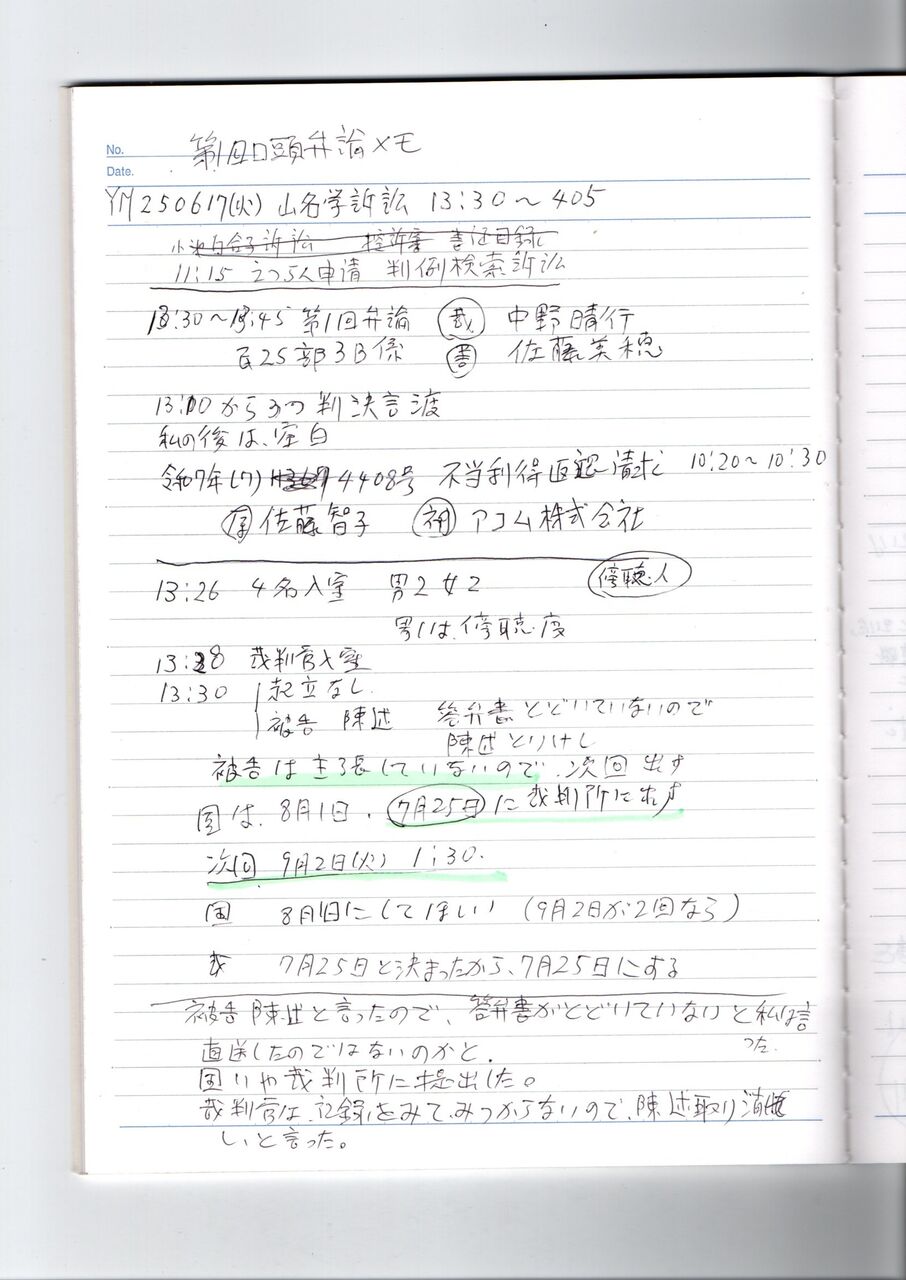 No. 第1回口頭弁論メモ
Date.
YM250617(火) 山名学訴訟 13:30〜 405
小池百合子訴訟 控訴審 書証目録
11:15 申請 判例検索訴訟
13:30〜13:45 第1回弁論 裁 中野晴行
民25部3B係 書 佐藤美穂
13:10から3つ判決言渡
私の後は、空白
令和7年(ワ) 4408号 不当利得返還請求 10:20〜10:30
原 佐藤智子 被 アコム株式会社
13:26 4名入室 男2女2 傍聴人
男1は、傍聴席
13:28 裁判官入室
13:30 起立なし
被告 陳述 答弁書とどいていないので
陳述とりけし
被告は主張していないので、次回出す
国は、8月1日、7月25日に裁判所に出す
次回 9月2日(火) 1:30.
国 8月1日にしてほしい (9月2日が2回なら)
裁 7月25日と決まったから、7月25日にする
被告陳述と言ったので、答弁書がとどいていないと私は言
った.
直送したのではないのかと.
国いや裁判所に提出した。
裁判官は、記録をみて、みつからないので、陳述取り消
しと言った。